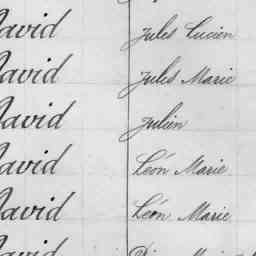 David Jules Lucien
David Jules Marie
David Julien
David Léon Marie
David Léon Marie
David